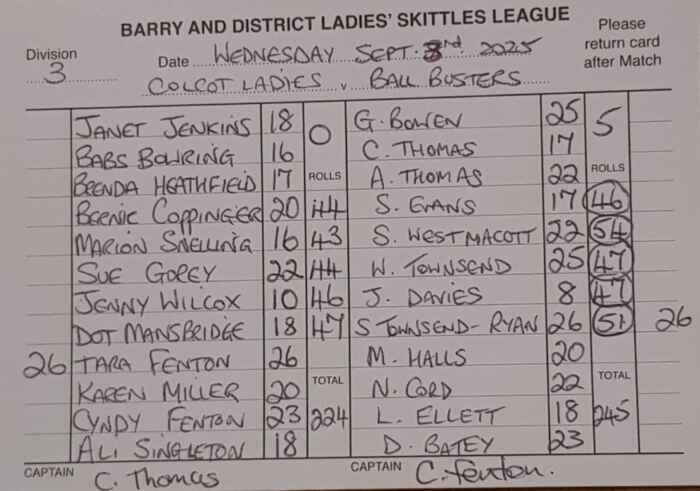 BARRY AND DISTRICT LADIES' SKITTLES LEAGUE
Please return card after Match
Division 3 Date WEDNESDAY SEPT. 3rd. 2025
COLCOT LADIES v BALL BUSTERS
JANET JENKINS 18 0 G. BOWEN 25 5
BABS BOWRING 16 C. THOMAS 17
BRENDA HEATHFIELD 17 ROLLS A. THOMAS 22 ROLLS
BERNIE COPPINGER 20 44 S. EVANS 17 46
MARION SNELLING 16 43 S. WESTMACOTT 22 54
SUE GOREY 22 44 W. TOWNSEND 25 47
JENNY WILCOX 10 46 J. DAVIES 8 47
DOT MANSBRIDGE 18 47 S TOWNSEND-RYAN 26 51 26
26 TARA FENTON 26 M. HALLS 20
KAREN MILLER 20 TOTAL N. CORD 22 TOTAL
CYNDY FENTON 23 224 L. ELLETT 18 245
ALI SINGLETON 18 D. BATEY 23
CAPTAIN C. Thomas CAPTAIN C. Fenton.